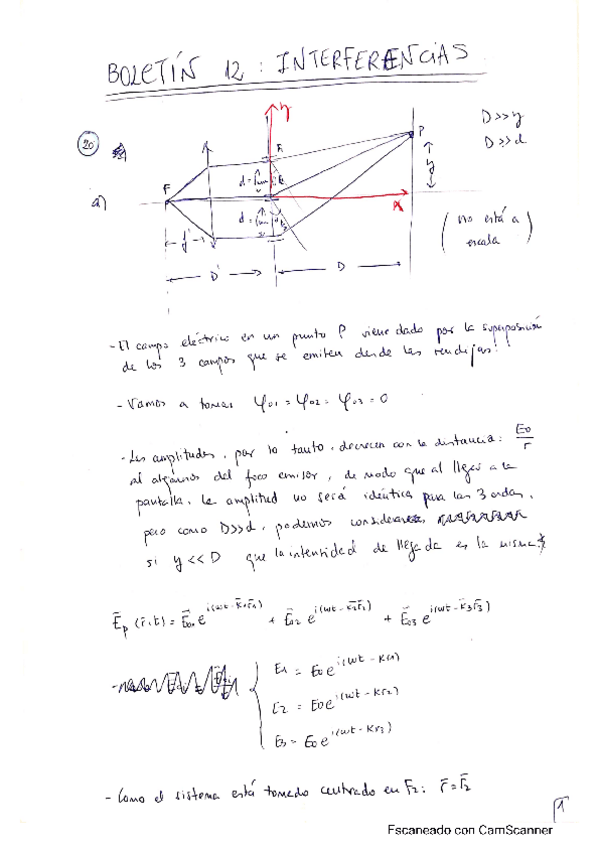 BOLETÍN 12: INTERFERENCIAS
20
a)
y
R
P
D>>y
D>>d
F
d = 1mm
y
x
d = 1mm
(no está a
escala)
f'
D'
D
- El campo eléctrico en un punto P viene dado por la superposición
de los 3 campos que se emiten desde las rendijas:
- Vamos a tomar φ01 = φ02 = φ03 = 0
- Las amplitudes, por lo tanto, decrecen con la distancia: E0/r
al alejarnos del foco emisor, de modo que al llegar a la
pantalla, la amplitud no será idéntica para las 3 ondas,
pero como D>>d, podemos considerar
si y << D que la intensidad de llegada es la misma
Ēp (r̄,t) = Ē01 e^i(ωt - k̄1r̄1) + Ē02 e^i(ωt - k̄2r̄2) + Ē03 e^i(ωt - k̄3r̄3)
E1 = E0 e^i(ωt - kr1)
E2 = E0 e^i(ωt - kr2)
E3 = E0 e^i(ωt - kr3)
- Como el sistema está tomado centrado en F2: r̄ = r̄2
1
Escaneado con CamScanner